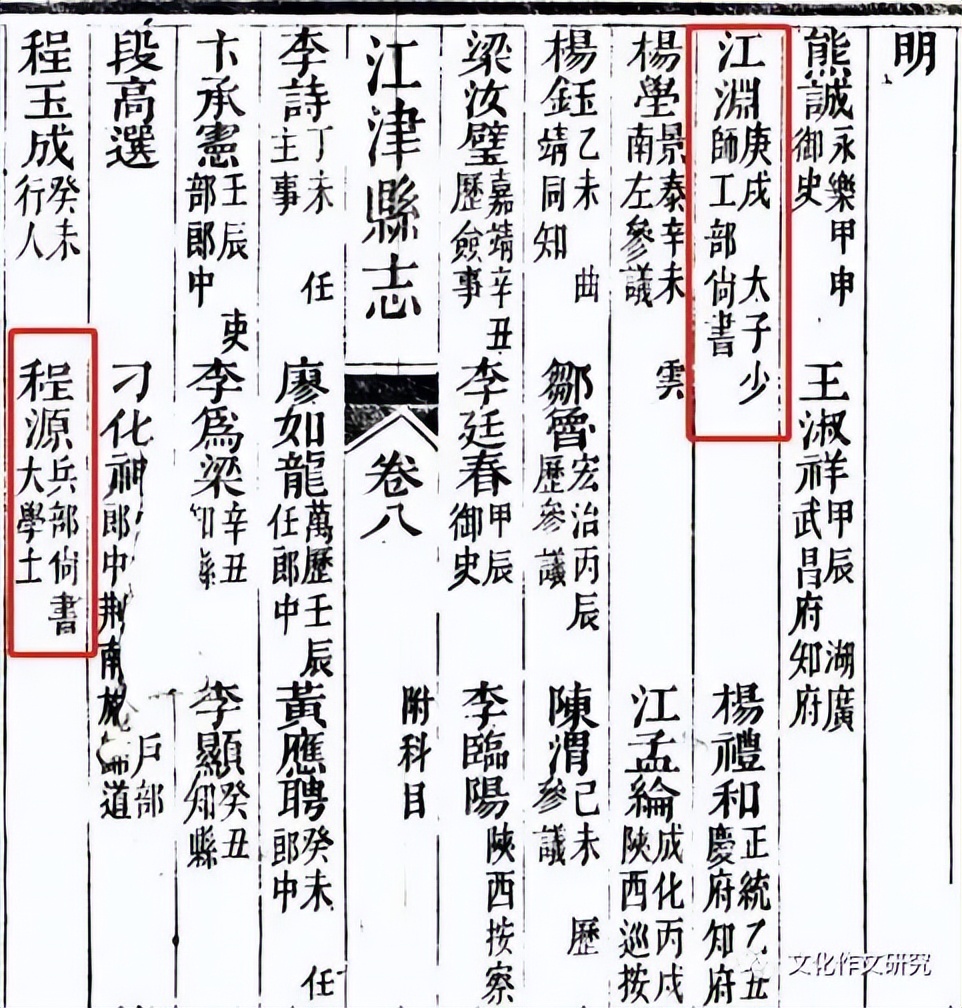 明
熊誠永樂甲申御史 王淑祥甲辰湖廣武昌府知府
江淵庚戌太子少師工部尚書 楊禮和正統乙丑慶府知府
楊學景泰辛未雲南左參議 江孟綸成化丙戌陝西巡按
楊鈺乙未曲靖同知 鄒魯宏治丙辰歷參議 陳渭己未歷參議
梁汝璧嘉靖辛丑歷僉事 李廷春甲辰御史 李臨陽陝西按察
江津縣志 卷八 附科目
李詩丁未任主事 廖如龍萬歷壬辰任郎中 黃應聘癸未任郎中
卞承憲壬辰吏部郎中 李爲梁辛丑知縣 李顯癸丑知縣
段高選 刁化神戶部郎中荆南道
程玉成癸未行人 程源兵部尚書大學士
文化作文研究